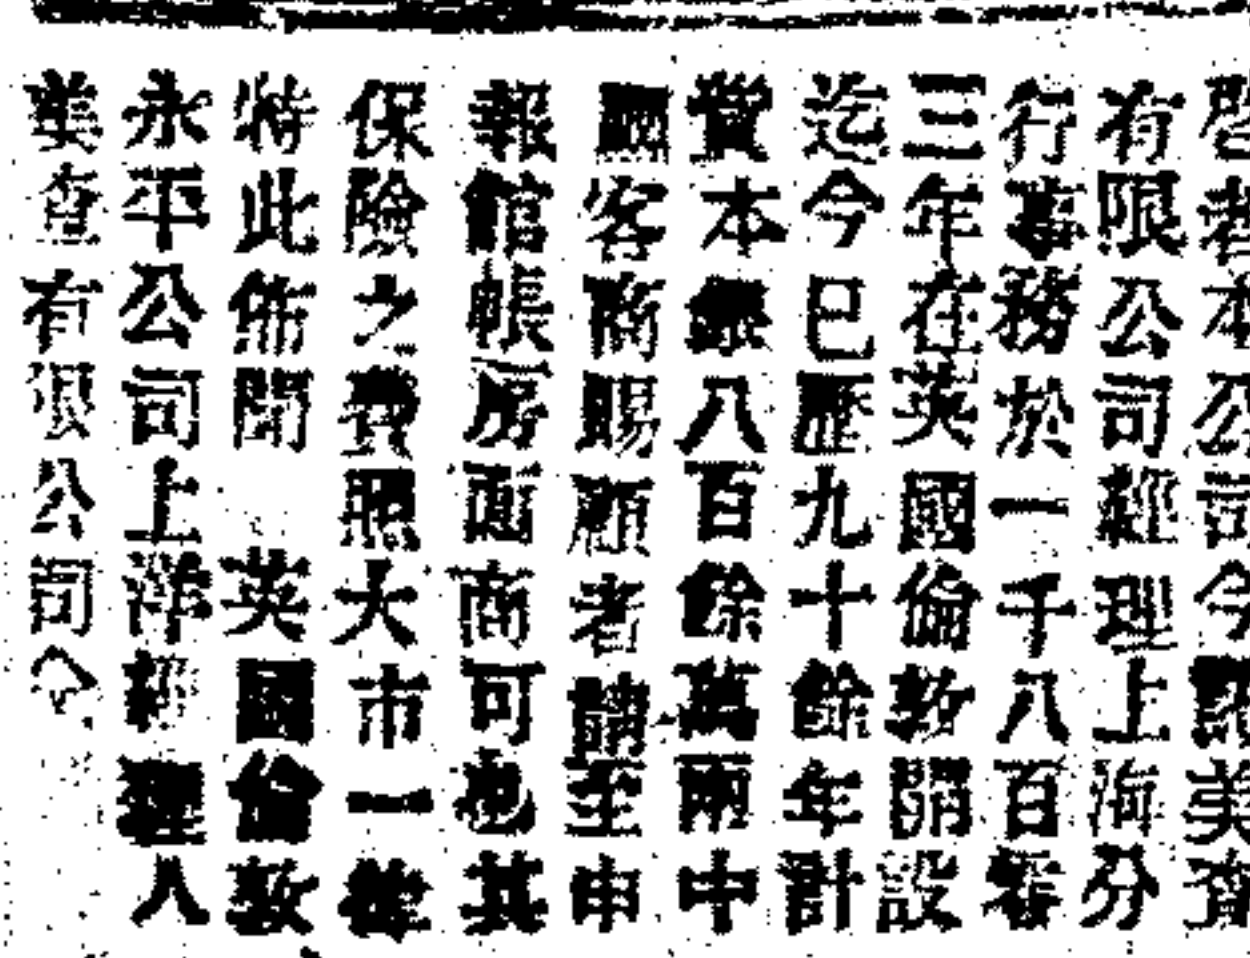 啓者本公司今託美查
有限公司經理上海分
行事務於一千八百零
三年在英國倫敦開設
迄今已歷九十餘年計
資本銀八百餘萬兩中
國客商賜顧者請至申
報館帳房面商可也其
保險之費照大市一律
特此佈聞 英國倫敦
永平公司上洋經理人
美查有限公司